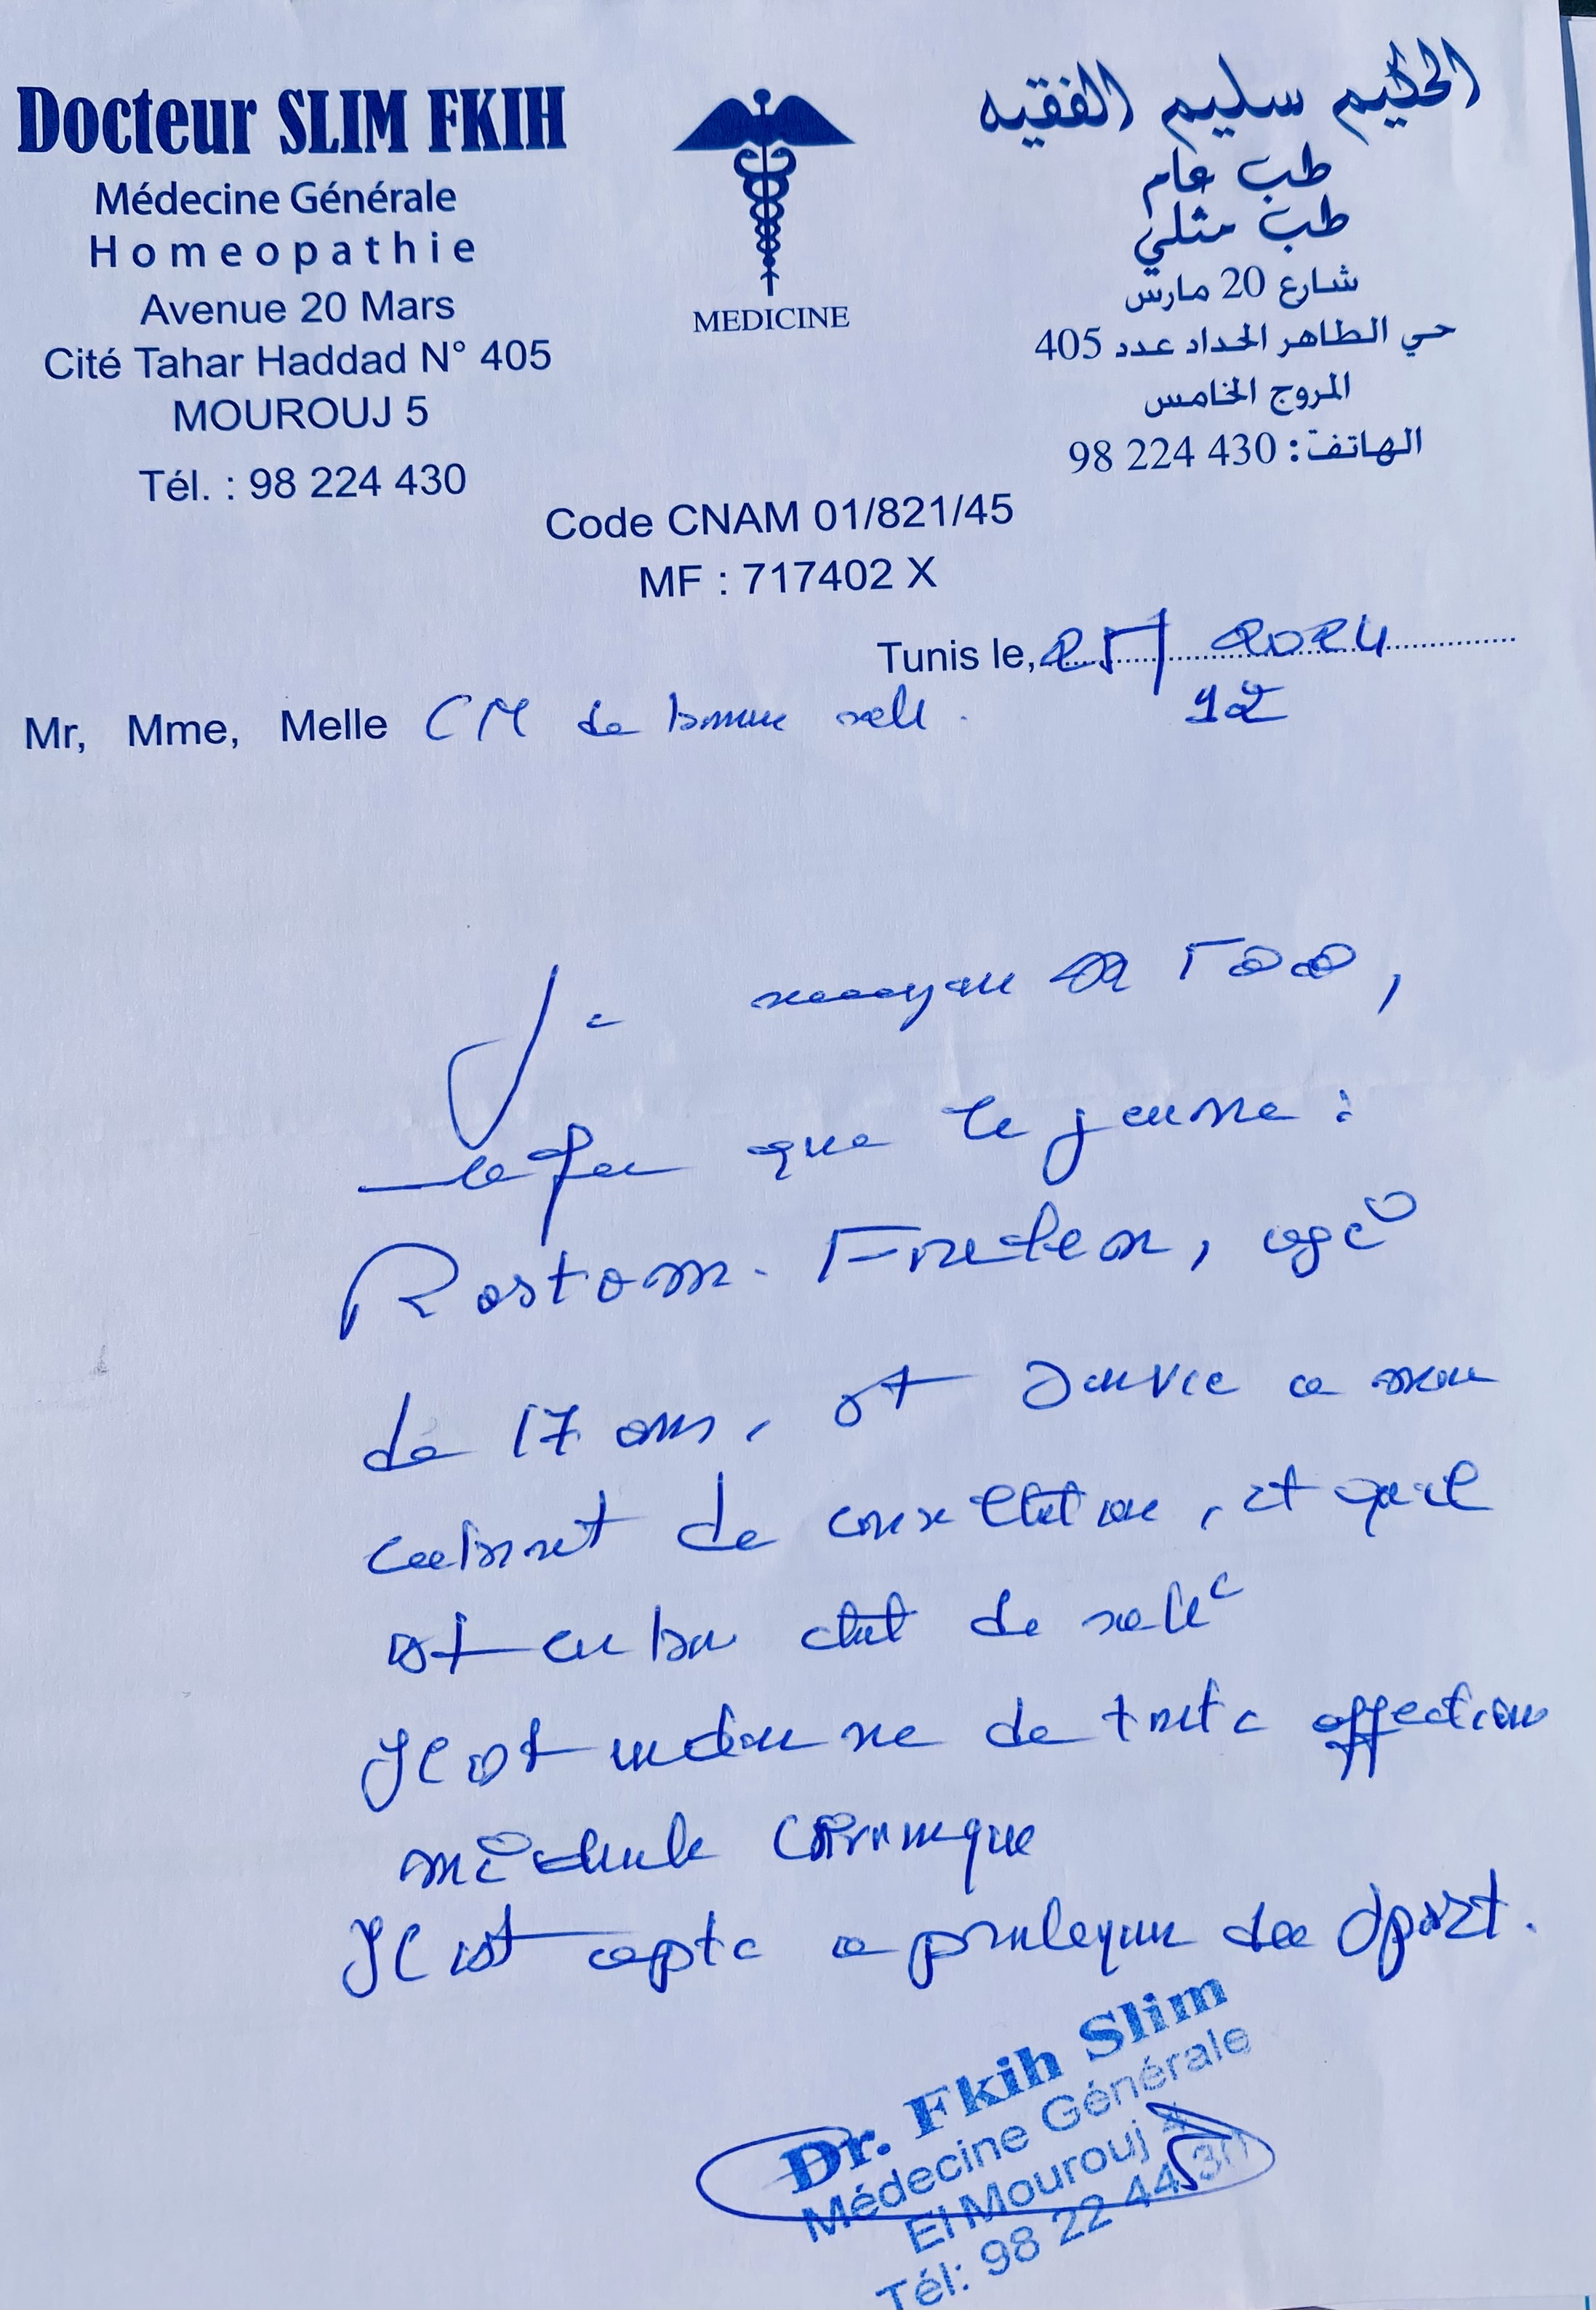 Docteur SLIM FKIH
Médecine Générale
Homeopathie
Avenue 20 Mars
Cité Tahar Haddad N° 405
MOUROUJ 5
Tél. : 98 224 430
MEDICINE
الحكيم سليم الفقيه
طب عام
طب مثلي
شارع 20 مارس
حي الطاهر الحداد عدد 405
المروج الخامس
الهاتف: 430 224 98
Code CNAM 01/821/45
MF : 717402 X
Tunis le, 25/ 2024
12
Mr, Mme, Melle CM de bonne
que le jeune :
Rostom. , agé
de 17 ans, est suivie a mon
cabinet de consultation, et qu'il
est en bon etat de santé
Il est indemne de toute affection
médicale chronique
Il est apte a pratiquer du sport.
Dr. Fkih Slim
Médecine Générale
El Mourouj 5
Tél: 98 22 44 30